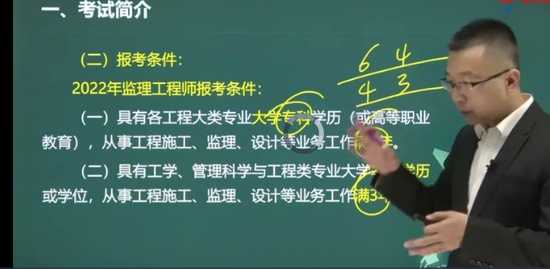 一、考试简介
（二）报考条件：
2022年监理工程师报考条件：
（一）具有各工程大类专业大学专科学历（或高等职业
教育），从事工程施工、监理、设计等业务工作满
（二）具有工学、管理科学与工程类专业大学 学历
或学位，从事工程施工、监理、设计等业务工作满3
6 4
4 3